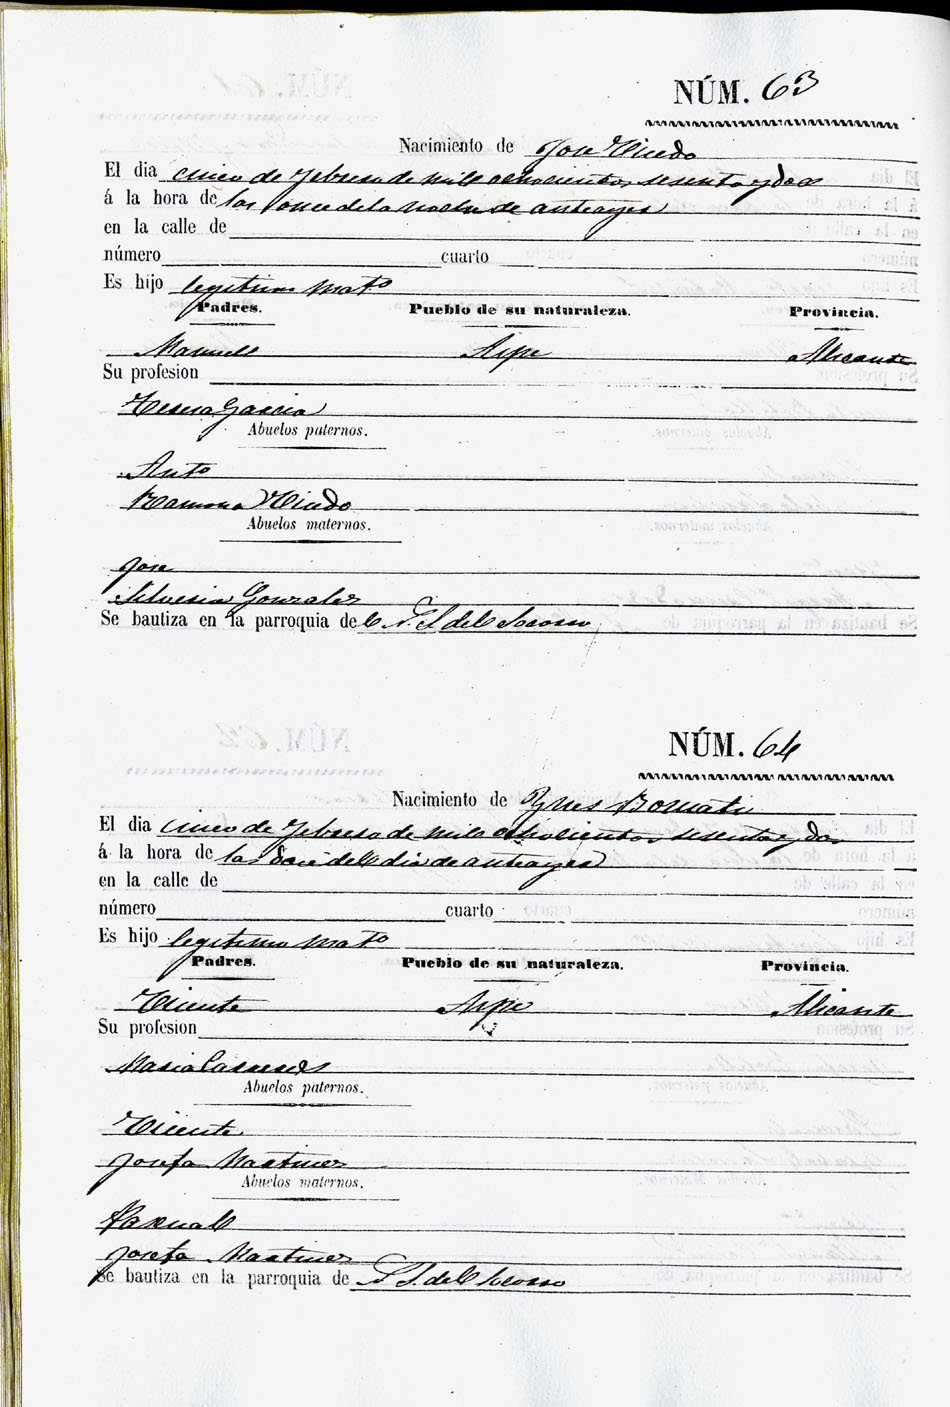 NÚM. 63
Nacimiento de Jose
El dia cinco de Febrero de mil ochocientos sesenta y dos
á la hora de las once de la noche de anteayer
en la calle de
número cuarto
Es hijo legitimo Matº
Padres. Pueblo de su naturaleza. Provincia.
Manuel Aspe Alicante
Su profesion
Teresa Garcia
Abuelos paternos.
Antº
Ramona
Abuelos maternos.
Jose
Silvesia Gonzalez
Se bautiza en la parroquia de N. S. del Socorro
NÚM. 64
Nacimiento de Ynes
El dia cinco de Febrero de mil ochocientos sesenta y dos
á la hora de las doce del dia de anteayer
en la calle de
número cuarto
Es hijo legitimo Matº
Padres. Pueblo de su naturaleza. Provincia.
Vicente Aspe Alicante
Su profesion
Maria
Abuelos paternos.
Vicente
Josefa Martinez
Abuelos maternos.
Pascual
Josefa Martinez
Se bautiza en la parroquia de S. del Socorro